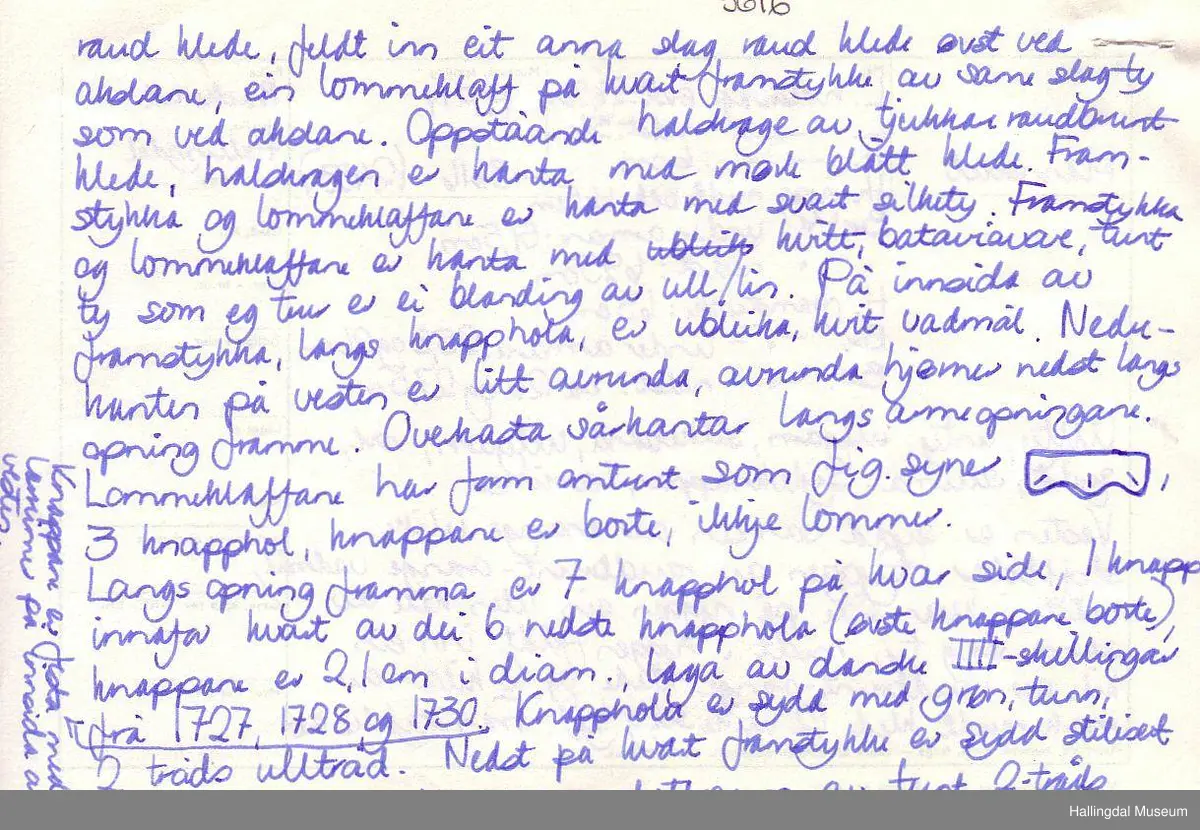 5616
raud klede, feldt inn eit anna slag raud klede øvst ved
akslane, ein lommeklaff på kvart framstykke av same slag ty
som ved akslane. Oppståande halskrage av tjukkare raudbrunt
klede, halskragen er kanta med mørk blått klede. Fram-
stykka og lommeklaffane er kanta med svart silkety. Framstykka
og lommeklaffane er kanta med kvitt, bataviavove, tunt
ty som eg trur er ei blanding av ull/lin. På innsida av
framstykka, langs knapphola, er ubleika, kvit vadmål. Nedre-
kanten på vesten er litt avrunda, avrunda hjørner nedst langs
opning framme. Overkasta sårkantar langs armeopningane.
Lommeklaffane har form omtrent som fig. syner ,
3 knapphol, knappane er borte, ikkje lommer.
Langs opning framma er 7 knapphol på kvar side, 1 knapp
innafor kvart av dei 6 nedste knapphola (øvste knappane borte),
knappane er 2,1 cm i diam., laga av danske IIII-skillingar
frå 1727, 1728, og 1730. Knapphola er sydd med grøn, tunn,
2 tråds ulltråd. Nedst på kvart framstykke er sydd stilisert
av tunt 2-tråds
Knappane er festa med
på innsida a
vesten.
Hallingdal Museum